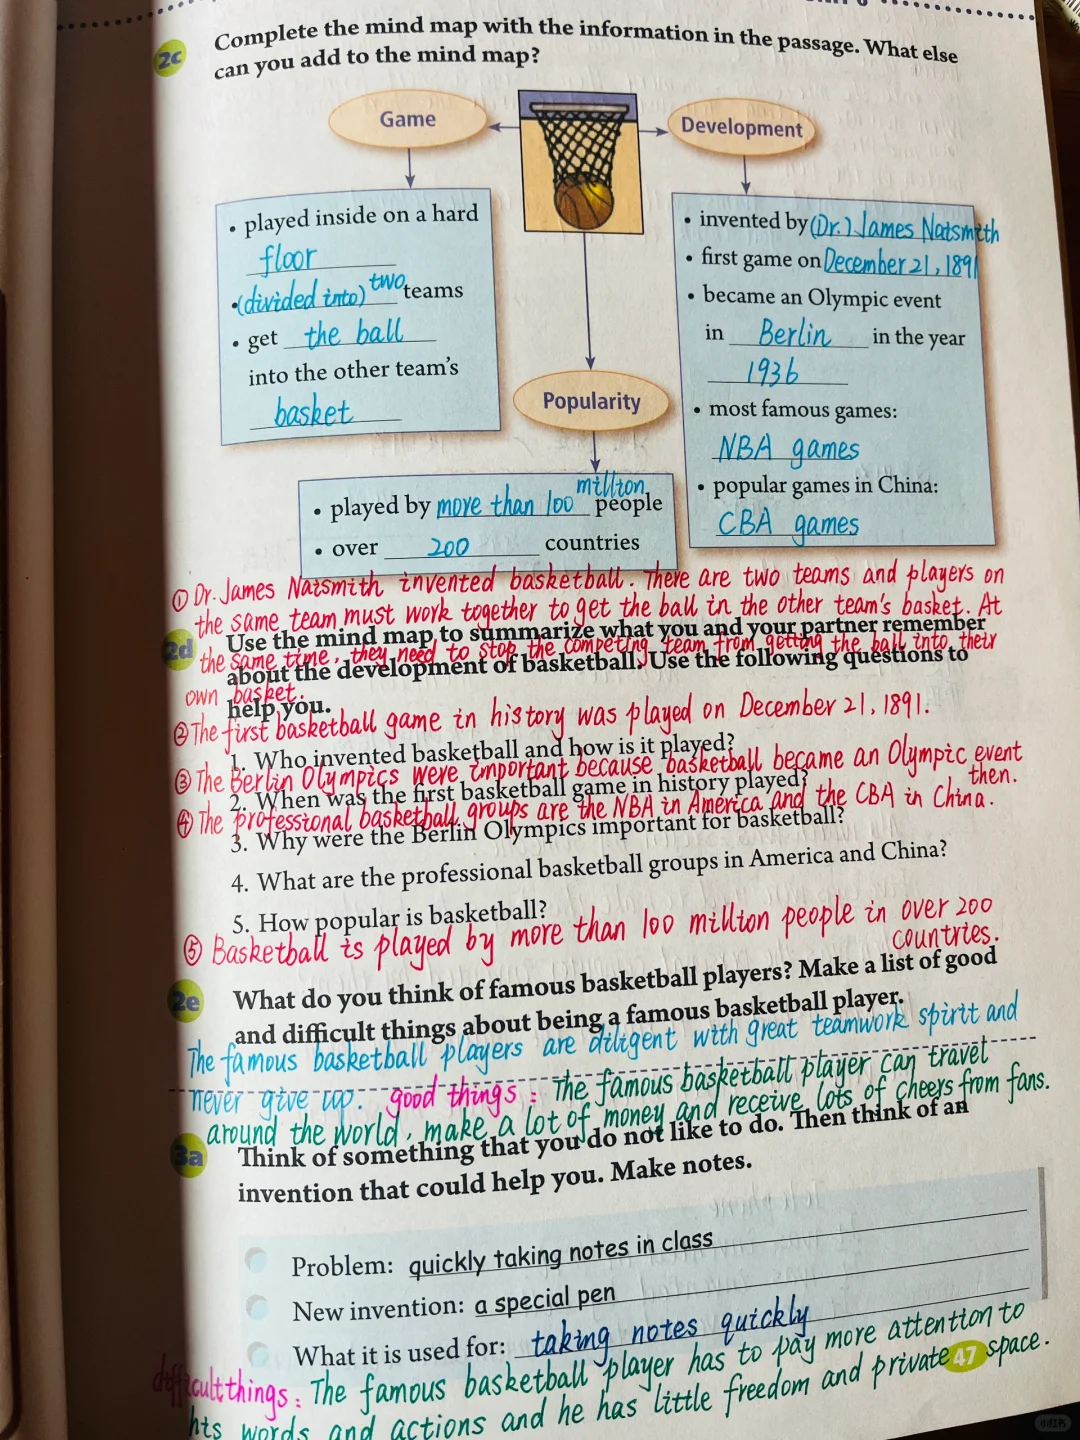 2c
Complete the mind map with the information in the passage. What else
can you add to the mind map?
Game
Development
• played inside on a hard
floor
• (divided into) two teams
• get the ball
into the other team's
basket
• invented by (Dr.) James Naismith
• first game on December 21, 1891
• became an Olympic event
in Berlin in the year
1936
• most famous games:
NBA games
• popular games in China:
CBA games
Popularity
• played by more than 100 million people
• over 200 countries
① Dr. James Naismith invented basketball. There are two teams and players on
the same team must work together to get the ball in the other team's basket. At
2d
Use the mind map to summarize what you and your partner remember
the same time, they need to stop the competing team from getting the ball into their
about the development of basketball. Use the following questions to
own basket.
help you.
② The first basketball game in history was played on December 21, 1891.
1. Who invented basketball and how is it played?
③ The Berlin Olympics were important because basketball became an Olympic event
then.
2. When was the first basketball game in history played?
④ The professional basketball groups are the NBA in America and the CBA in China.
3. Why were the Berlin Olympics important for basketball?
4. What are the professional basketball groups in America and China?
5. How popular is basketball?
⑤ Basketball is played by more than 100 million people in over 200
countries.
2e
What do you think of famous basketball players? Make a list of good
and difficult things about being a famous basketball player.
The famous basketball players are diligent with great teamwork spirit and
never give up. good things: The famous basketball player can travel
around the world, make a lot of money and receive lots of cheers from fans.
3a
Think of something that you do not like to do. Then think of an
invention that could help you. Make notes.
Problem: quickly taking notes in class
New invention: a special pen
What it is used for: taking notes quickly
difficult things: The famous basketball player has to pay more attention to
his words and actions and he has little freedom and private space.
47
小红书